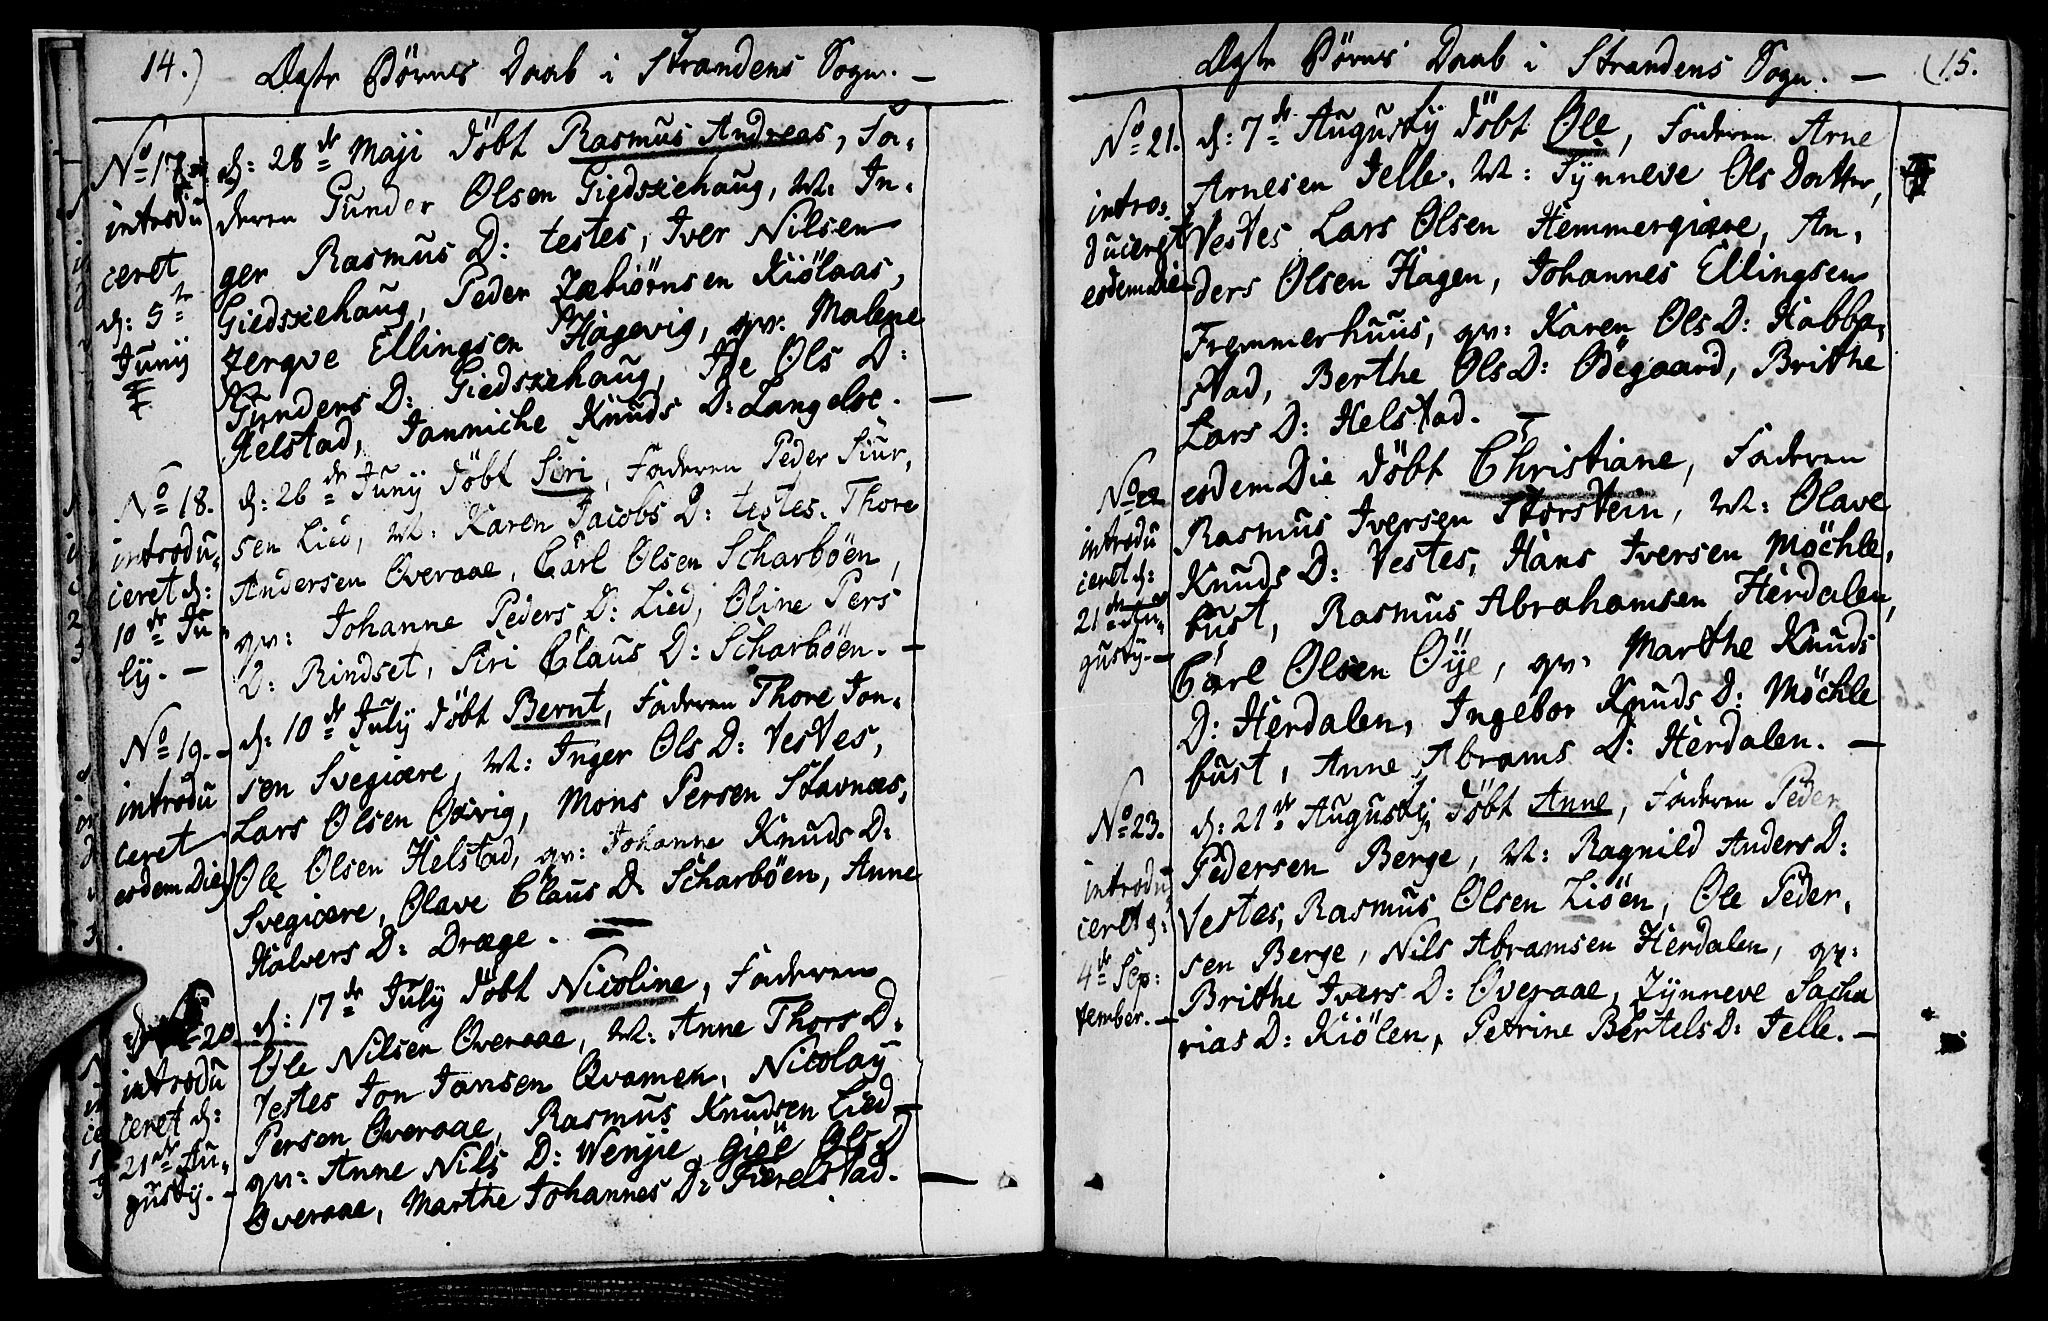 14.) Ægte Börnes Daab i Strandens Sogn. —
No 17.
introdu
ceret
d: 5te
Junij
d: 28de Maji döbt Rasmus Andreas, Fa,
deren Gunder Olsen Giedskehaug, M: In,
ger Rasmus D: testes, Iver Nilsen
Giedskehaug, Peder Zebiörnsen Kiölaas,
Zergve Ellingsen Hagevig, qv: Malene
Gunders D: Giedskehaug, Ols D:
Helstad, Jannicke Knuds D: Langeloe. —
No 18.
introdu,
ceret d:
10de Ju
ly. —
d: 26de Junij döbt Siri, Faderen Peder Siur,
sen Lied, M: Karen Jacobs D: testes. Thore
Andersen Overaae, Carl Olsen Scharböen,
qv: Johanne Peders D: Lied, Oline Pers
D: Rindset, Siri Claus D: Scharböen. —
No 19. —
introdu
ceret
eodem Die
d: 10de July döbt Bernt, Faderen Thore Jon,
sen Svegiære, M: Inger Ols D: testes,
Lars Olsen Oxvig, Mons Persen Stavnæs,
Ole Olsen Helstad, qv: Johanne Knuds D:
Svegiære, Olave Claus D: Scharböen, Anne
Halvers D: Dræge. —
20
introdu
ceret d:
21de Au,
gusty. —
d: 17de July döbt Nicoline, Faderen
Ole Nilsen Overaae, M: Anne Thors D:
testes Jon Jansen Qvamen, Nicolay
Persen Overaae, Rasmus Knudsen Lied
qv: Anne Nils D: Wenjie Giöe Ols D
Overaae, Marthe Johannes D: Fierelstad. —
Ægte Börnes Daab i Strandens Sogn. — (15.
No 21.
intro,
duceret
eodem Die
d: 7de Augusty döbt Ole, Faderen Arne
Arnesen Jelle, M: Synneve Ols Datter,
testes Lars Olsen Hemmergiære, An,
ders Olsen Hagen, Johannes Ellingsen
Fremmerhuus, qv: Karen Ols D: Habbo,
stad, Berthe Ols D: Ödegaard, Brithe
Lars D: Helstad. —
No 22
introdu
ceret d:
21de Au,
gusty. —
eodem Die döbt Christiane, Faderen
Rasmus Iversen Storstein, M: Olave
Knuds D: testes, Hans Iversen Möchle,
bust, Rasmus Abrahamsen Herdalen,
Carl Olsen Öye, qv: Marthe Knuds
D: Herdalen, Ingebor Knuds D: Möchle
bust, Anne Abrams D: Herdalen. —
No 23.
introdu
ceret d:
4de Sep:
tember. —
d: 21de Augusty döbt Anne, Faderen Peder
Pedersen Berge, M: Ragnild Anders D:
testes, Rasmus Olsen Liöen, Ole Peder,
sen Berge, Nils Abramsen Herdalen, qv:
Brithe Ivers D: Overaae, Zynneve Sacha
rias D: Kiölen, Petrine Bertels D: Jelle. —